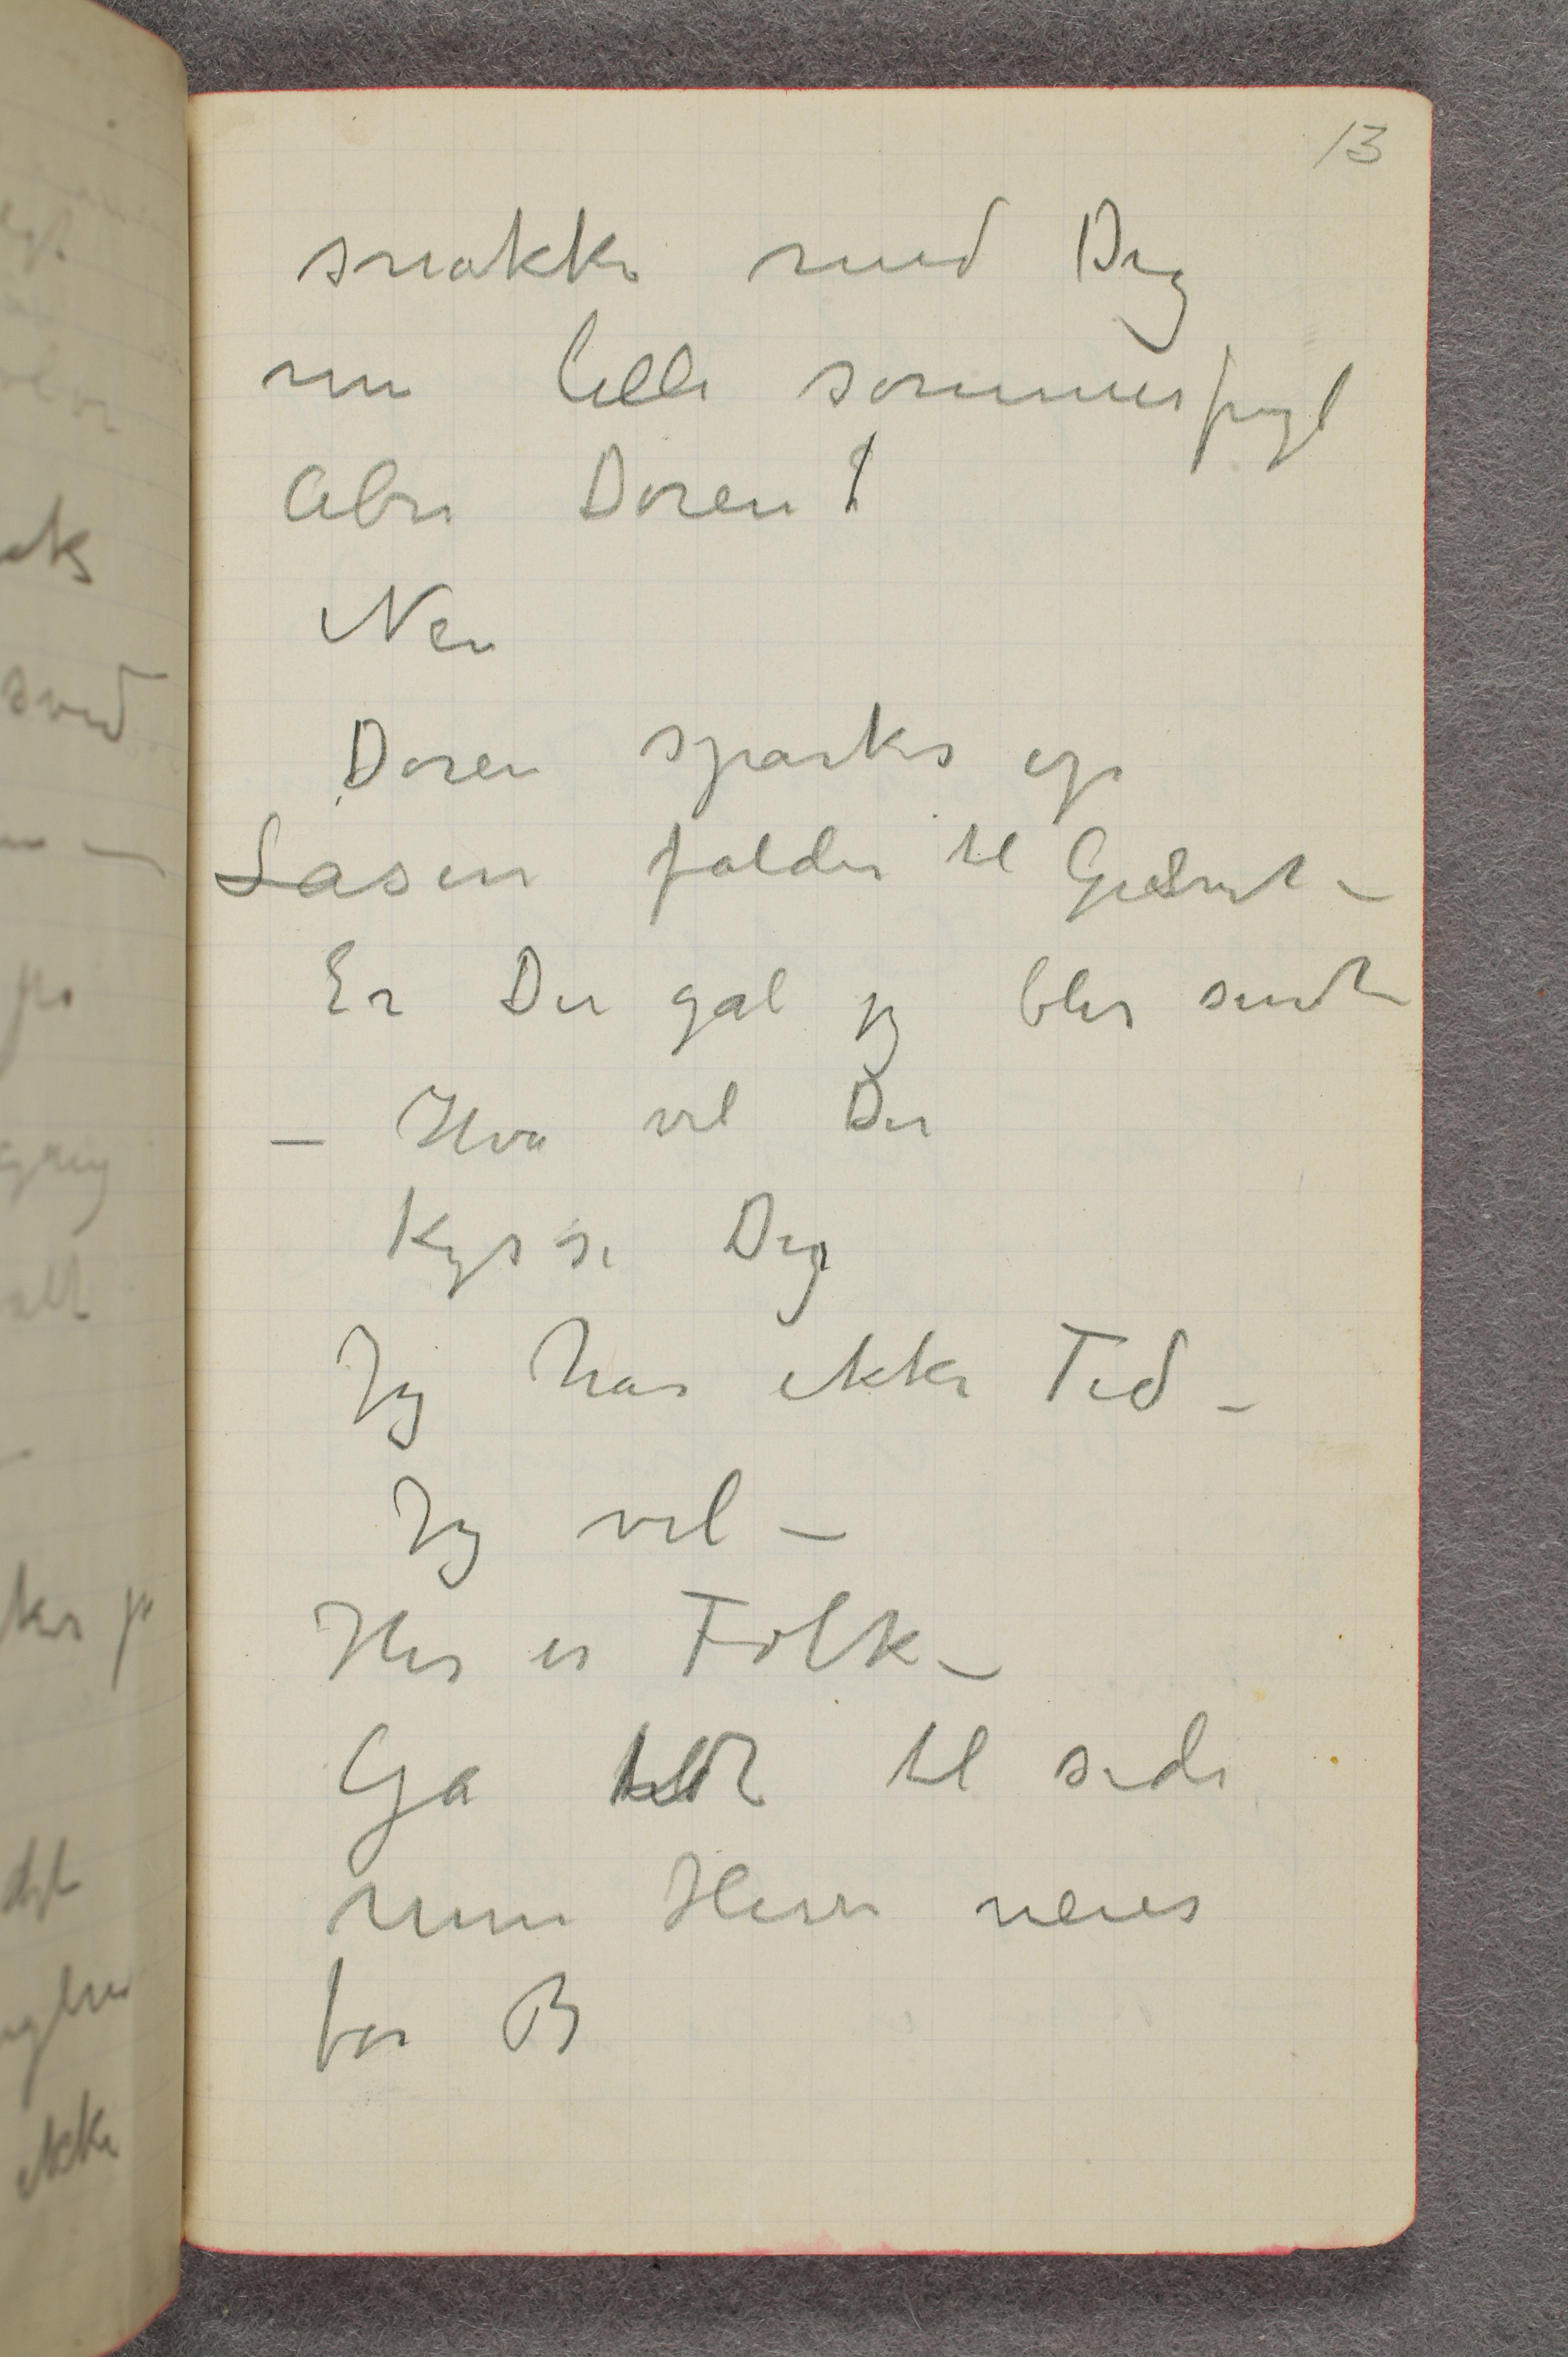 13
snakke med Dig
min lille sommerfugl
Abn Doren!
Nei
Doren sparkes op
Låsen falder til Gulvet –
Er Du gal jeg blir sendt
– Hva vil Du
Kysse Dig
Jeg har ikke Tid –
Jeg vil –
Her er Folk –
Gå til side
min Herre
for B